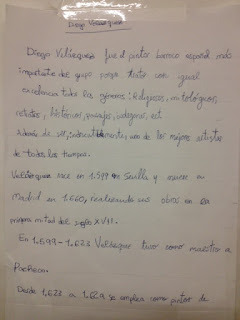 Diego Velázquez
Diego Velázquez fue el pintor barroco español más
importante del grupo porque trato con igual
excelencia todos los géneros: Religiosos, mitológicos,
retratos, históricos, paisajes, bodegones, ect.
Además de ser, indiscutiblemente, uno de los mejores artistas
de todos los tiempos.
Velázquez nace en 1.599 en Sevilla y muere a
Madrid en 1.660, realizando sus obras en la
primera mitad del siglo XVII.
En 1.699-1.623 Velázquez tuvo como maestro a
Pacheco.
Desde 1.623 a 1.629 se emplea como pintor de